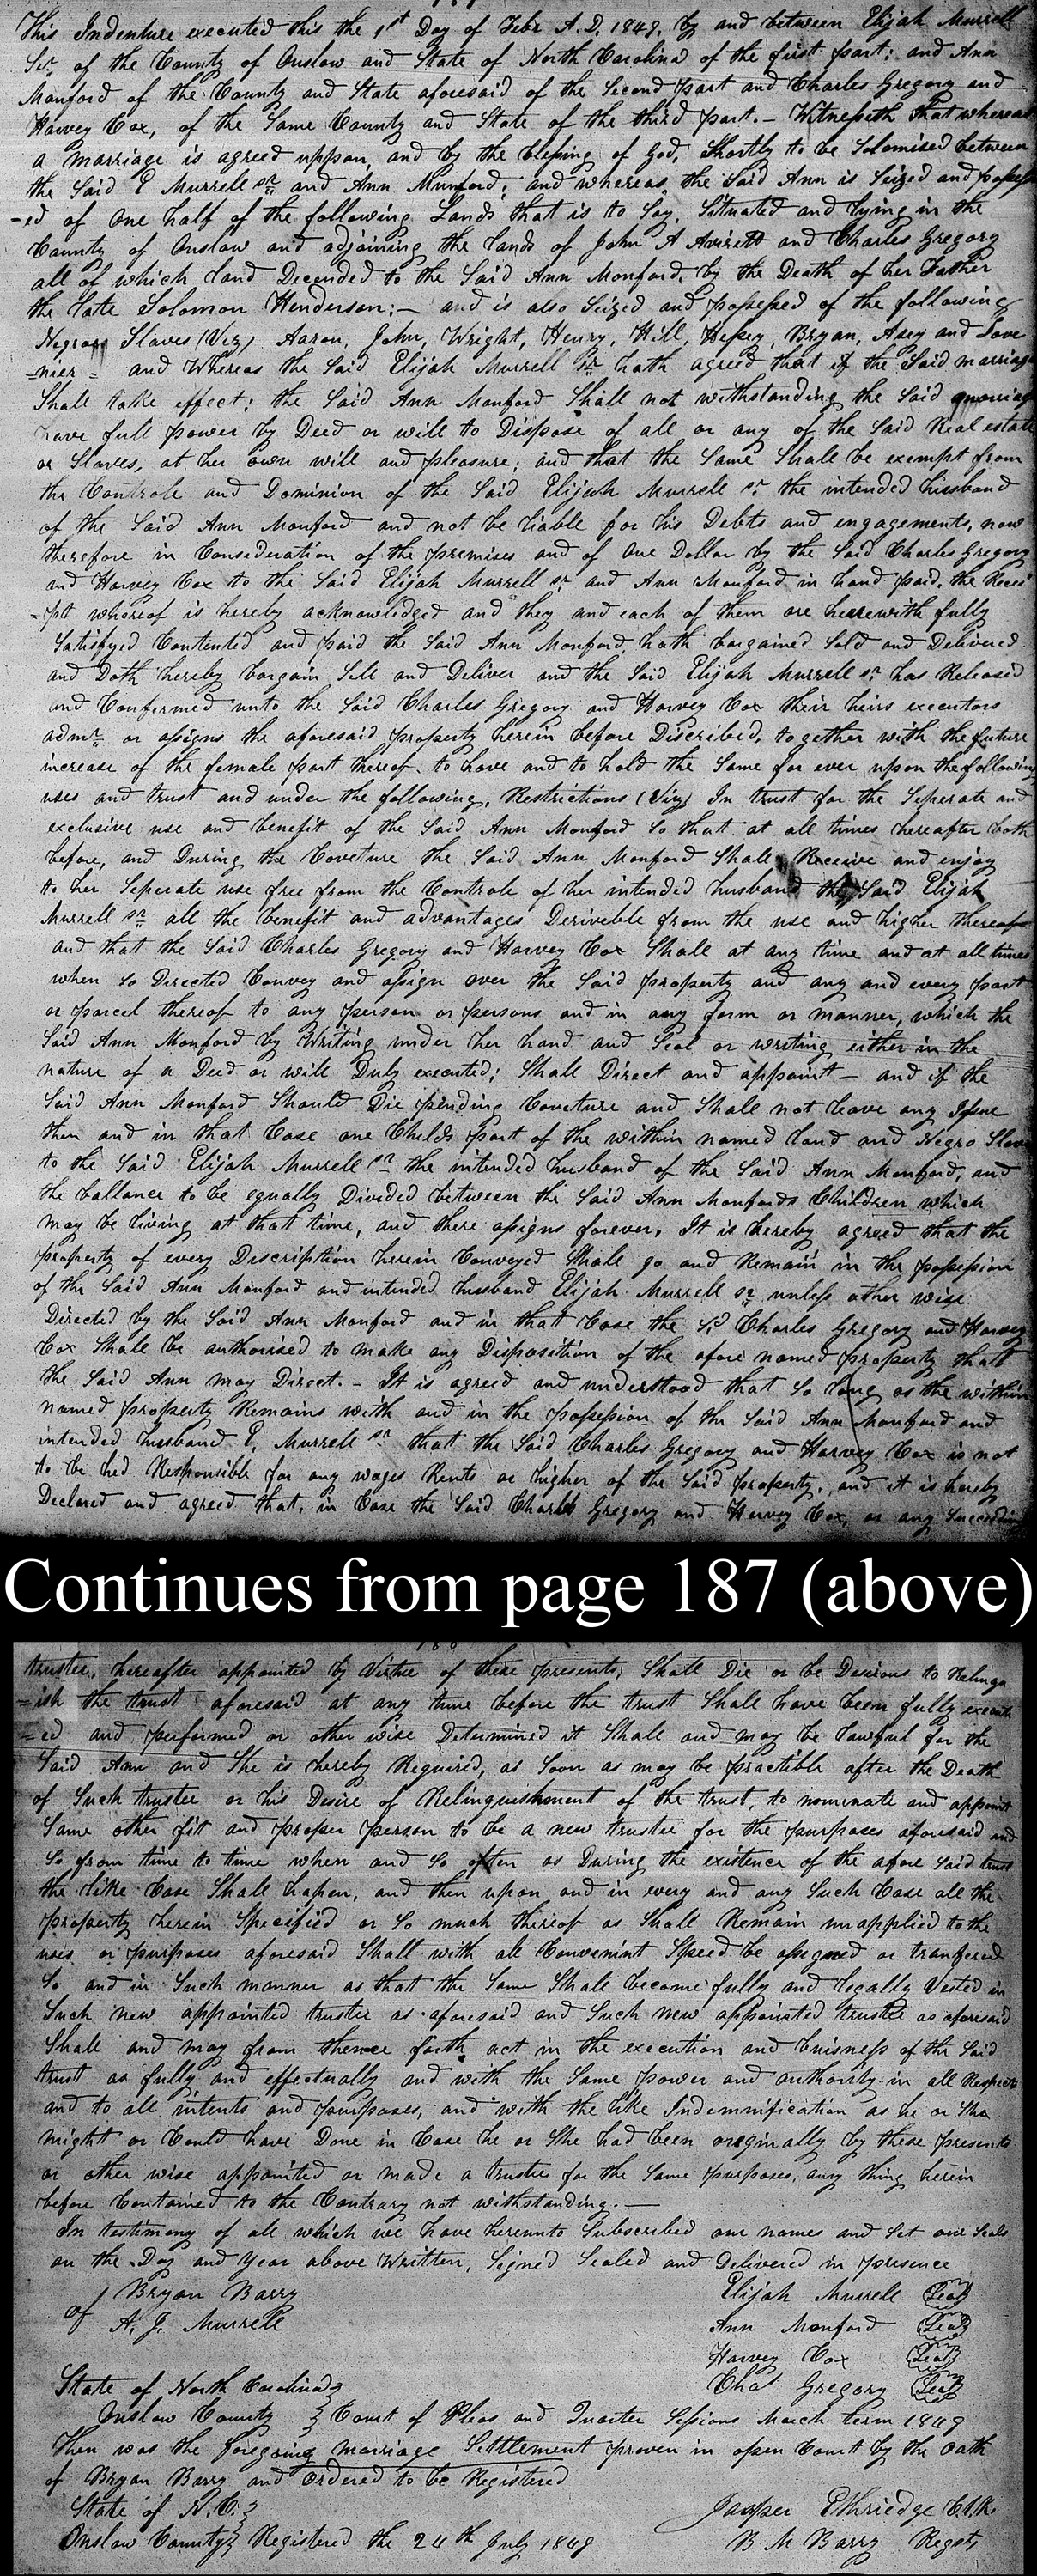 This Indenture executed this the 1st Day of Febr A.D. 1849. by and between Elijah Murrell
Ser. of the County of Onslow and State of North Carolina of the first part; and Ann
Monford of the County and State aforesaid of the Second part and Charles Gregory and
Harvey Cox, of the Same County and State of the third part. - Witnesseth that whereas
a marriage is agreed uppon, and by the blessing of God, Shortly to be Solomised between
the Said E Murrell sr and Ann Munford; and whereas, the Said Ann is Seized and possess
-ed of one half of the following Lands that is to Say, Situated and lying in the
County of Onslow and adjoining the lands of John A Averett and Charles Gregory
all of which land Decended to the Said Ann Monford, by the Death of her Father
the late Solomon Henderson; - and is also Seized and possessed of the following
Negroes Slaves (Viz) Aaron, John, Wright, Henry, Hill, Hepsey, Bryan, Asey and Love
-nier = and Whereas the Said Elijah Murrell Sr hath agreed that if the Said marriage
Shall take effect; the Said Ann Monford Shall not withstanding the Said marriage
have full power by Deed or will to Dispose of all or any of the Said Real estate
or Slaves, at her own will and pleasure; and that the Same Shall be exempt from
the Controle and Dominion of the Said Elijah Murrell sr the intended husband
of the Said Ann Monford and not be liable for his Debts and engagements, now
therefore in Consideration of the premises and of one Dollar by the Said Charles Gregory
and Harvey Cox to the Said Elijah Murrell sr and Ann Monford in hand paid, the Recei
-pt whereof is hereby acknowledged and they and each of them are herewith fully
Satisfyed Contented and paid the Said Ann Monford, hath bargained Sold and Delivered
and Doth hereby bargain Sell and Deliver and the Said Elijah Murrell sr has Released
and Confirmed unto the Said Charles Gregory and Harvey Cox their heirs executors
admr or assigns the aforesaid property herein before Discribed, together with the future
increase of the female part thereof. to have and to hold the Same for ever upon the following
uses and trust and under the following, Restrictions (Viz) In trust for the Seperate and
exclusive use and benefit of the Said Ann Monford So that at all times hereafter both
before, and During the Coveture the Said Ann Monford Shall Receive and enjoy
to her Seperate use free from the Controle of her intended husband the Said Elijah
Murrell sr all the benefit and advantages Deriveble from the use and higher thereof
and that the Said Charles Gregory and Harvey Cox Shall at any time and at all times
when so Directed Convey and assign over the Said property and any and every part
or parcel thereof to any person or persons and in any form or manner, which the
Said Ann Monford by Writing under her hand and Seal or writing either in the
nature of a Deed or will Duly executed; Shall Direct and appoint - and if the
Said Ann Monford Should Die pending Coveture and Shall not leave any Issue
then and in that Case one Childs part of the within named land and Negro Slaves
to the Said Elijah Murrell sr the intended husband of the Said Ann Monford, and
the ballance to be equally Divided between the Said Ann Monfords Children which
may be living at that time, and there assigns forever. It is hereby agreed that the
property of every Discription herein Conveyed Shall go and Remain in the possession
of the Said Ann Monford and intended husband Elijah Murrell sr unless other wise
Directed by the Said Ann Monford and in that Case the Sd Charles Gregory and Harvey
Cox Shall be authorised to make any Disposition of the afore named property that
the Said Ann may Direct. - It is agreed and understood that So long as the within
named property Remains with and in the possession of the Said Ann Monford and
intended husband E, Murrell sr that the Said Charles Gregory and Harvey Cox is not
to be hed Responsible for any wages Rents or higher of the Said property., and it is hereby
Declared and agreed that, in Case the Said Charles Gregory and Harvey Cox, or any Succeeding
Continues from page 187 (above)
trustee, hereafter appointed by Virtue of these presents; Shall Die or be Desirous to Relinqu
=ish the trust aforesaid at any time before the trust Shall have been fully execut
=ed and performed or other wise Determined it Shall and may be lawful for the
Said Ann and She is hereby Required, as Soon as may be practible after the Death
of Such trustee or his Desire of Relinquishment of the trust, to nominate and appoint
Some other fit and proper person to be a new trustee for the purposes aforesaid and
So from time to time when and So often as During the existence of the afore Said trust
the like Case Shall hapen, and then upon and in every and any Such Case all the
property herein Specified or So much thereof as Shall Remain unapplied to the
uses or purposes aforesaid Shall with all Convenint Speed be assigned or tranfered
So and in Such manner as that the Same Shall become fully and legally Vested in
Such new appointed trustee as aforesaid and Such new appointed trustee as aforesaid
Shall and may from thence forth act in the execution and buisness of the Said
trust as fully and effectually and with the Same power and authority in all Respects
and to all intents and purposes, and with the like Indemnification as he or She
might or Could have Done in Case he or She had been oreginally by these presents
or other wise appointed or made a trustee for the Same purposes, any thing herein
before Contained to the Contrary not withstanding. -
In testimony of all which we have hereunto Subscribed our names and Set our Seals
on the Day and Year above Written, Signed Sealed and Delivered in presence
of Bryan Barry Elijah Murrell Seal
A. J. Murrell Ann Monford Seal
Harvey Cox Seal
Chas Gregory Seal
State of North Carolina
Onslow County Court of Pleas and Quarter Sessions March term 1849
Then was the foregoing marriage Settlement proven in open Court by the Oath
of Bryan Barry and ordered to be Registered
State of N.C. Jasper Ethriedge Clk.
Onslow County Registered the 24th July 1849 B M Barry Regstr